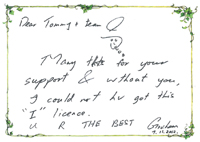 Dear Tommy & team
Many thk for your
support & without you,
I could not hv got this
"I" licence.
U R THE BEST Graham